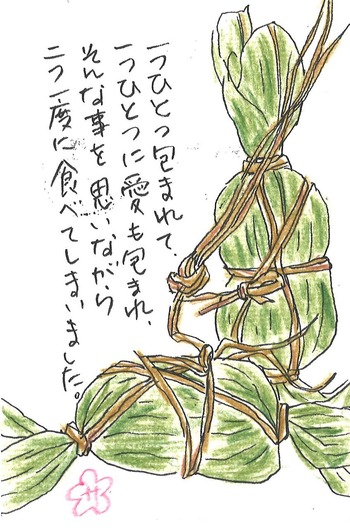 一つひとつ包まれて、
一つひとつに愛も包まれ、
そんな事を思いながら
二つ一度に食べてしまいました。
サ